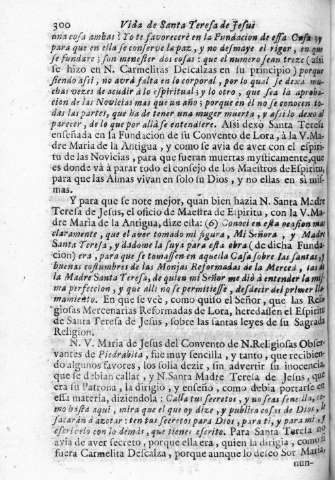 300 Vida de Santa Teresa de Jesus
una cosa ambas? To te favoreceré en la Fundacion de essa Casa y
para que en ella se conserve la paz, y no desmaye el rigor, en que
se fundare; son menester dos cosas: que el numero sean treze (assi
se hizo en N. Carmelitas Descalzas en su principio) porque
siendo assi, no avrá falta en lo corporal, por lo qual se dexa mu-
chas vezes de acudir á lo espiritual; y lo otro, que sea la aproba-
cion de las Novicias mas que un año; porque en él no se conocen to-
das las partes, que ha de tener una muger muerta, y assi lo dexo al
parecer, de lo que por allá se entendiere. Assi dexó Santa Teresa
enseñada en la Fundacion de su Convento de Lora, à la V. Ma-
dre Maria de la Antigua, y como se avia de aver con el espiri-
tu de las Novicias, para que fueran muertas mysticamente, que
es donde vá à parar todo el consejo de los Maestros de Espiritu,
para que las Almas vivan en solo su Dios, y no ellas en si mis-
mas.
Y para que se note mejor, quan bien hazia N. Santa Madre
Teresa de Jesus, el oficio de Maestra de Espiritu, con la V. Ma-
dre Maria de la Antigua, dize esta: (6) Conoci en esta ocasion mas
claramente, que el aver tomado mi figura, Mi Señora, y Madre
Santa Teresa, y dadome la suya para esta obra (de dicha Funda-
cion) era, para que se tomassen en aquella Casa sobre las santas, y
buenas costumbres de las Monjas Reformadas de la Merced, las de
la Madre Santa Teresa, de quien mi Señor me dió à entender la mis-
ma perfeccion, y que alli no se permitiesse, desdecir del primer lla-
mamiento. En que se vè, como quiso el Señor, que las Reli-
giosas Mercenarias Reformadas de Lora, heredassen el Espiritu
de Santa Teresa de Jesus, sobre las santas leyes de su Sagrada
Religion.
N. V. Maria de Jesus del Convento de N. Religiosas Obser-
vantes de Piedrabita, fue muy sencilla, y tanto, que recibien-
do algunos favores, los solia dezir, sin advertir su inocencia,
que se debian callar, y N. Santa Madre Teresa de Jesus, que
era su Patrona, la dirigió, y enseñó, como debia portarse en
essa materia, diziendola: Calla tus secretos, y no seas sencilla, co-
mo hasta aqui, mira que el que oy dize, y publica cosas de Dios, le
sacarán à azotar: ten tus secretos para Dios, para ti, y para mi, y
escrivelo con lo demás, que tienes escrito. Para Santa Teresa no
avia de aver secreto, porque ella era, quien la dirigia, como si
fuera Carmelita Descalza, porque aunque lo deseó Sor Maria,
nun-